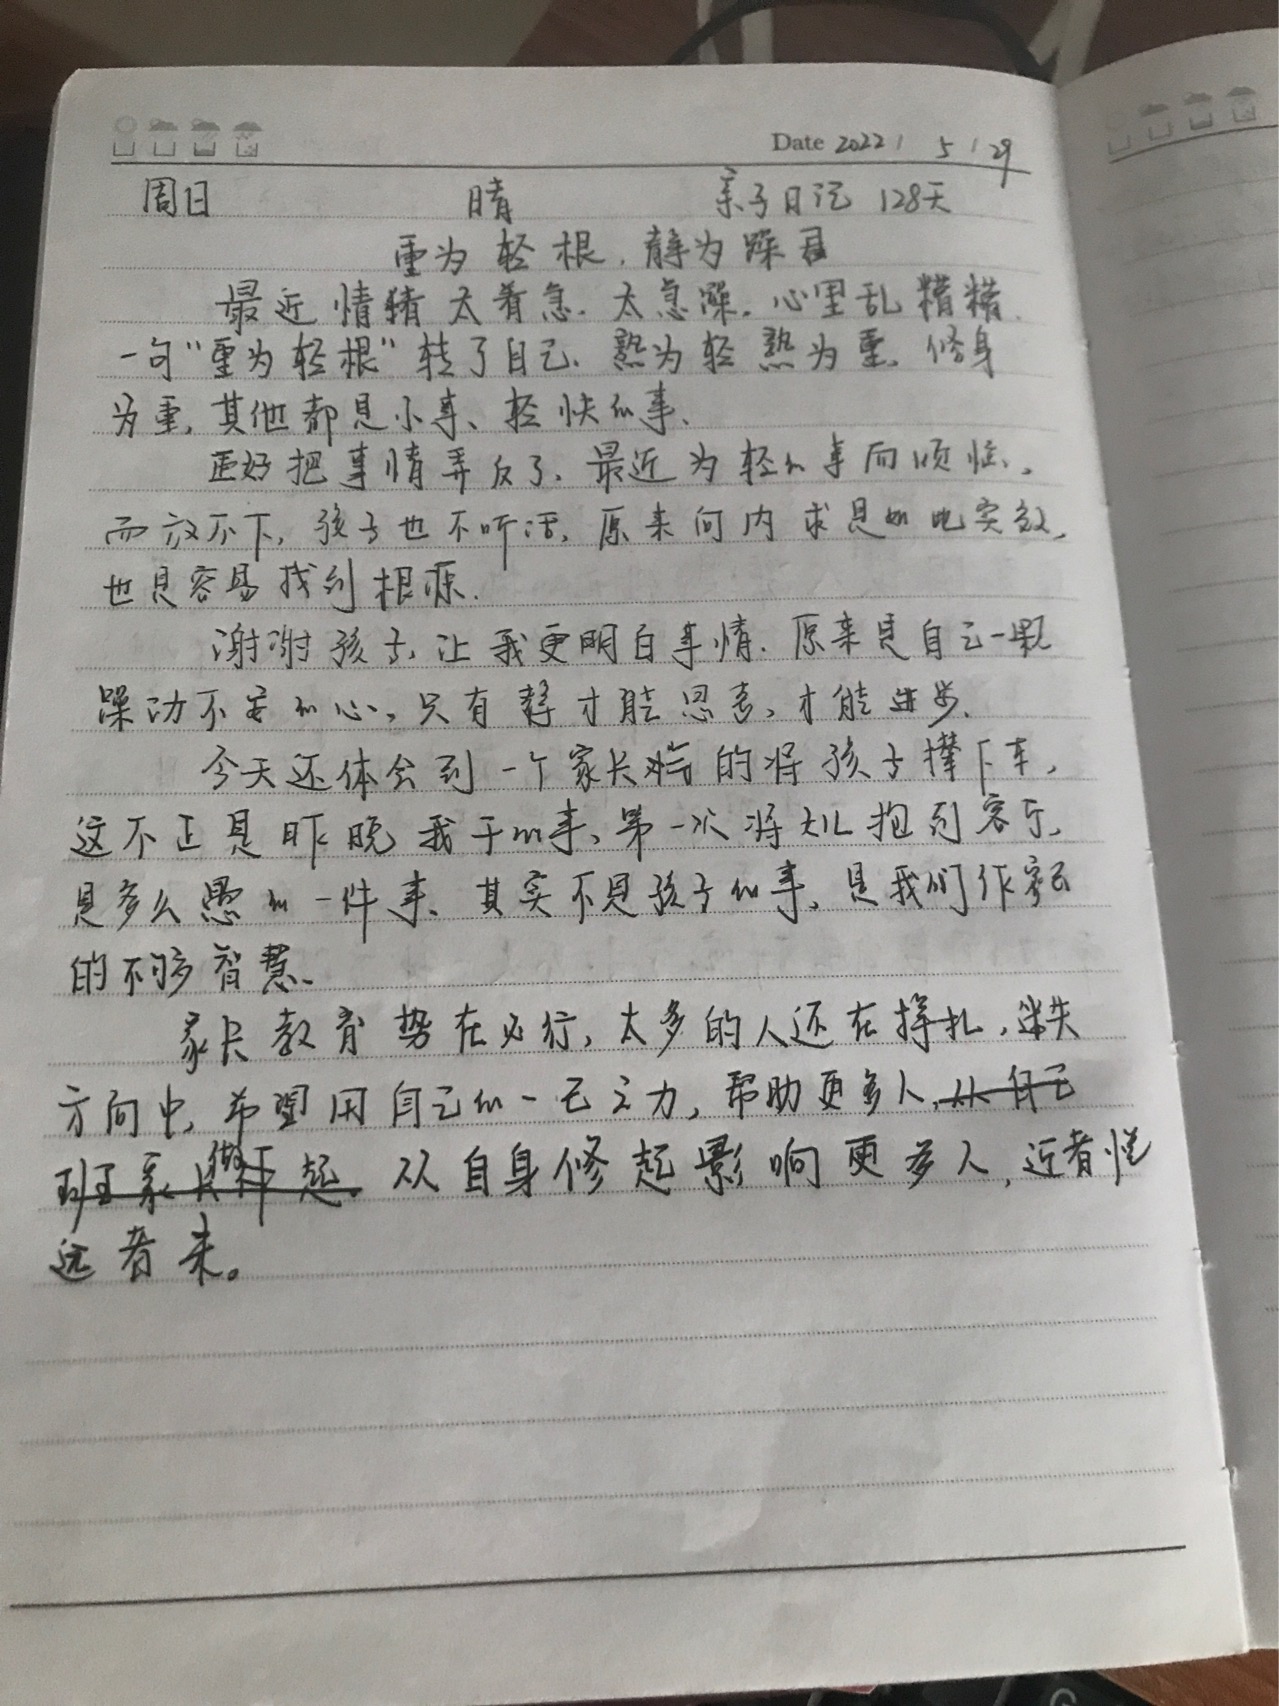 Date 2022 / 5 / 29
周日 晴 亲子日记 128天
重为轻根,静为躁君
最近情绪太着急.太急躁.心里乱糟糟.
一句"重为轻根"转了自己.熟为轻熟为重.修身
为重,其他都是小事、轻快的事、
正好把事情弄反了、最近为轻的事而烦恼、
而放不下,孩子也不听话,原来向内求是如此实效,
也是容易找到根源.
谢谢孩子,让我更明白事情.原来是自己一颗
躁动不安的心,只有静才能思考,才能进步.
今天还体会到一个家长 的将孩子撵下车,
这不正是昨晚我干的事、第一次将大儿抱到客厅,
是多么愚的一件事、其实不是孩子的事,是我们作家长
的不够智慧、
家长教育势在必行,太多的人还在挣扎,迷失
方向中,希望用自己的一己之力,帮助更多人,从自己
班家长做起.从自身修起影响更多人,近者悦
远者来。